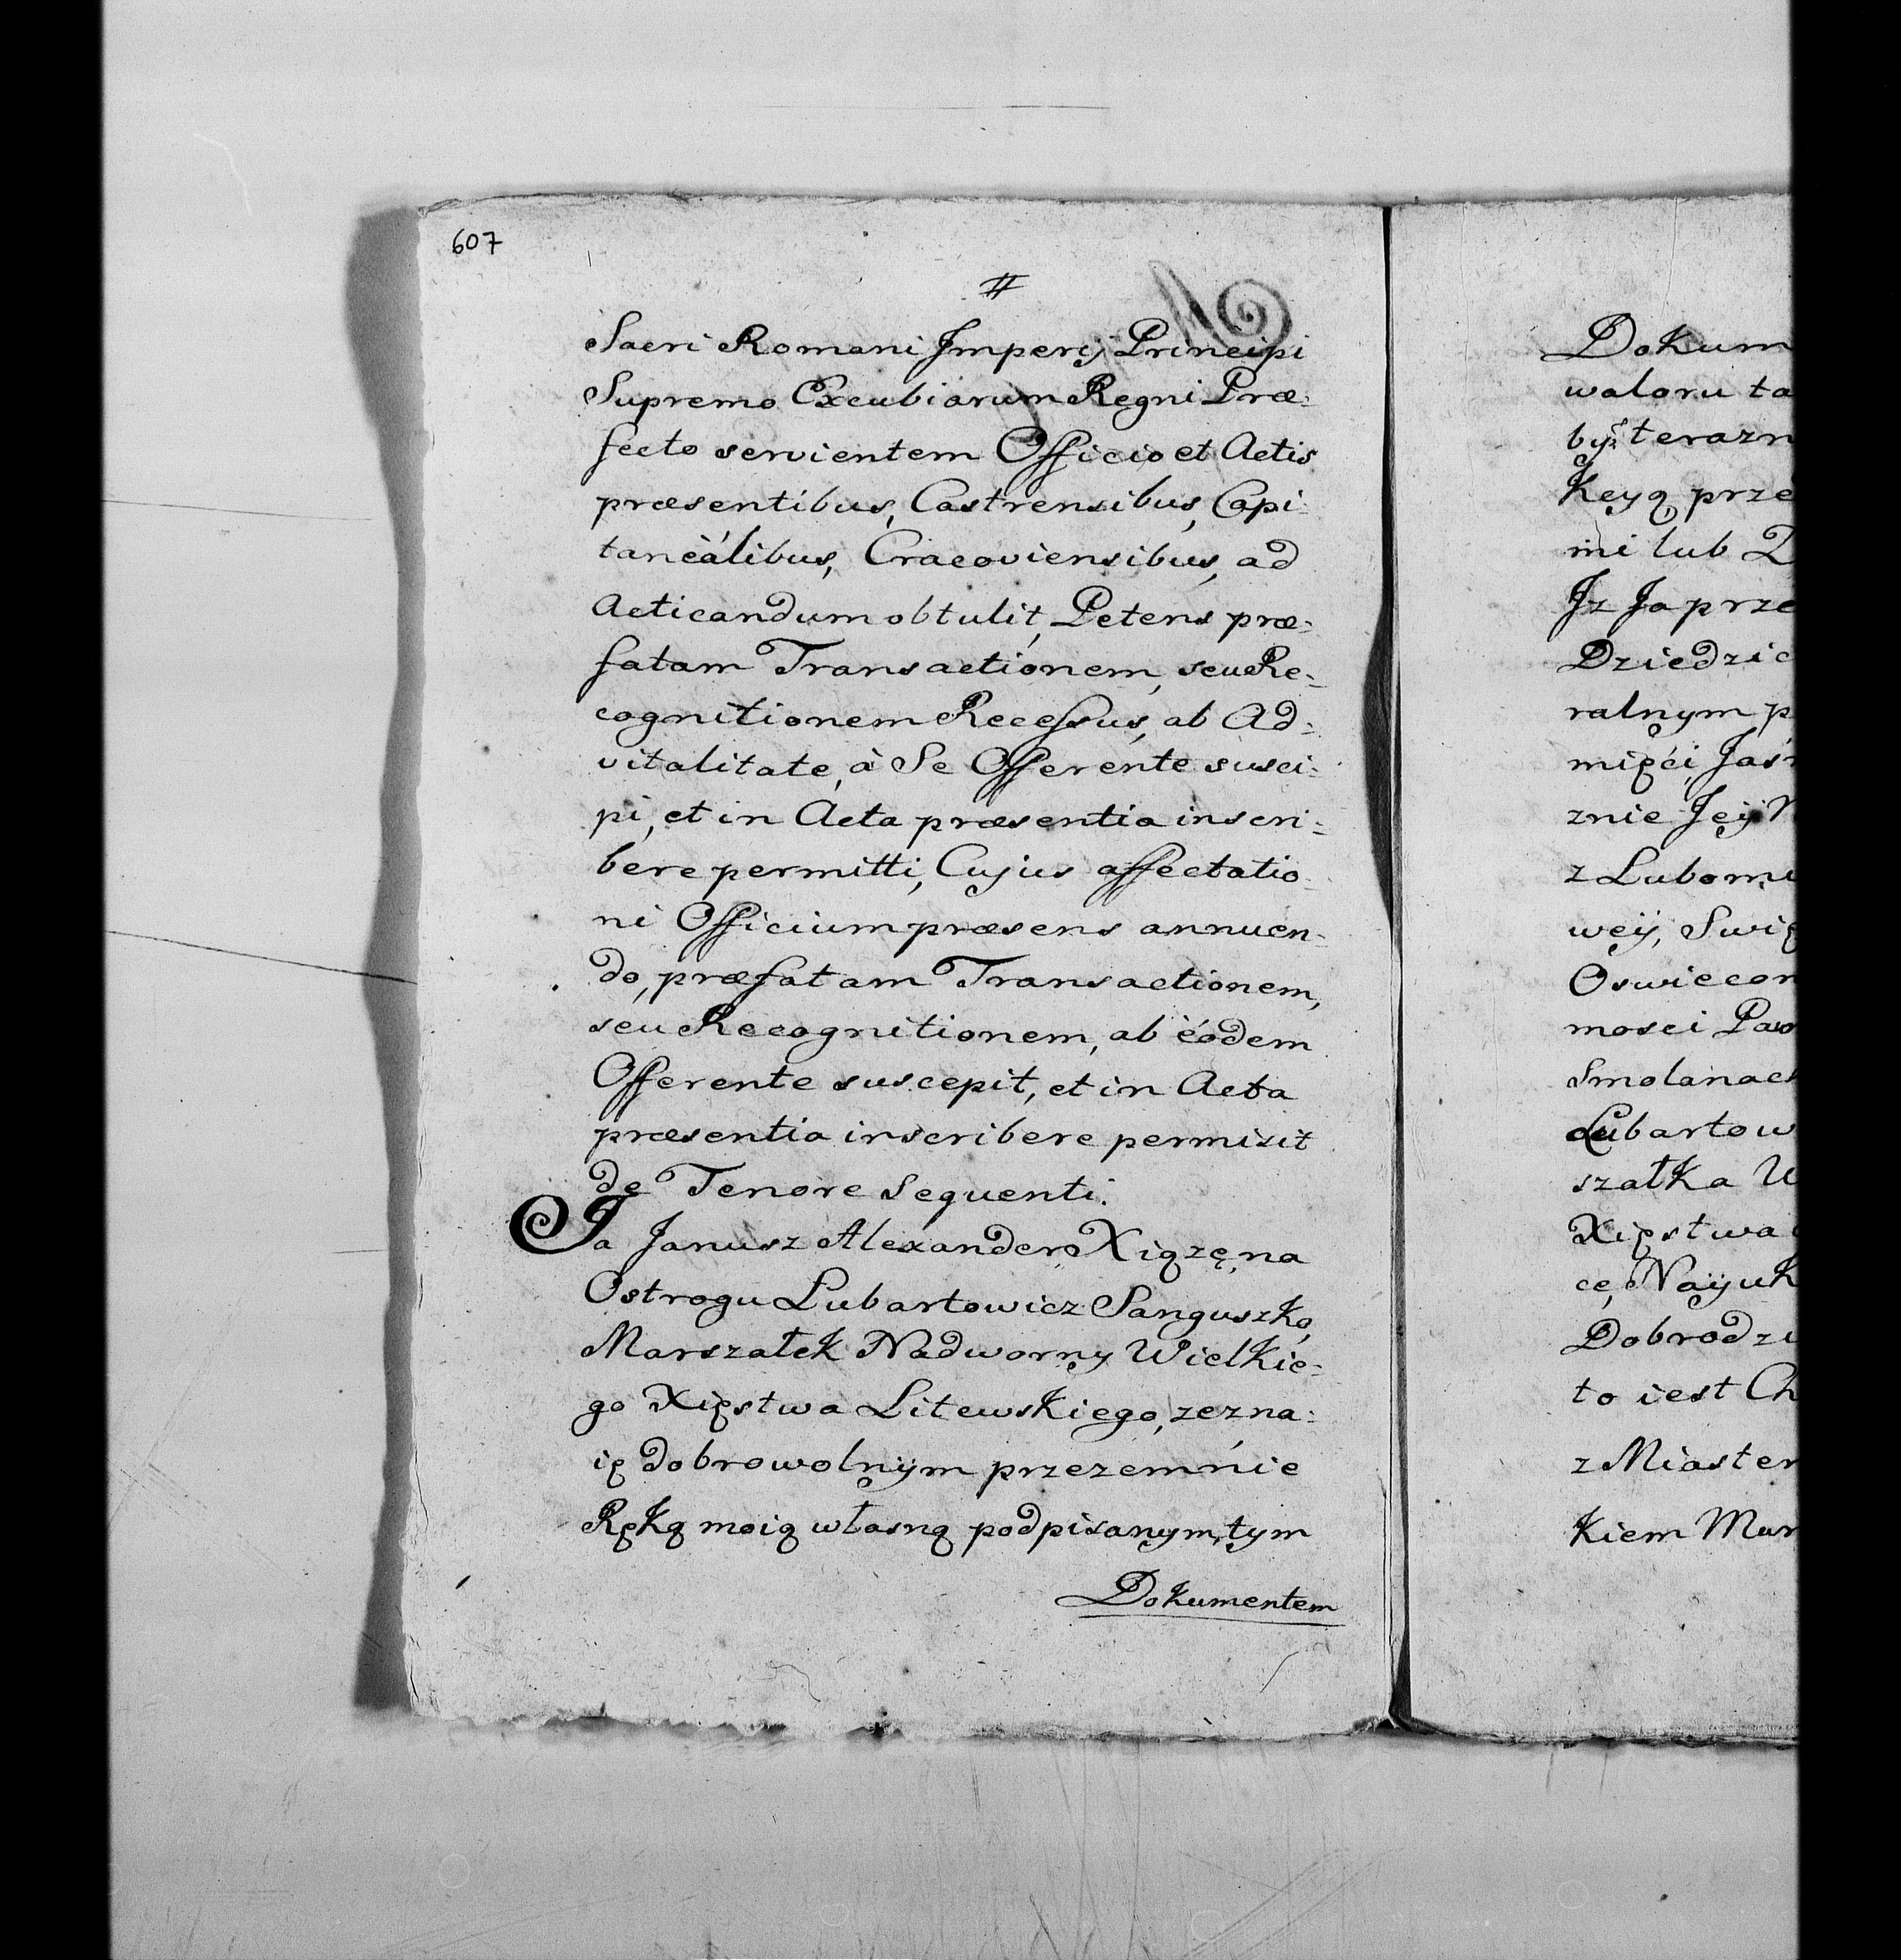 607
#
Sacri Romani Imperij Principi
Supremo Excubiarum Regni Præ:
fecto servientem Officio et Actis
præsentibus, Castrensibus, Capi:
taneàlibus, Cracoviensibus, ad
Acticandum obtulit, Petens præ:
fatam Transactionem, seu Re:
cognitionem Recessus, ab Ad:
vitalitate, à Se Offerente susci:
pi, et in Acta præsentia inscri:
bere permitti, Cujus affectatio:
ni Officium præsens annuen:
do, præfatam Transactionem,
seu Recognitionem, ab eódem
Offerente suscepit, et in Acta
præsentia inscribere permisit
de Tenore Sequenti.
Ja Janusz Alexander Xiążę, na
Ostrogu Lubartowicz Sanguszko,
Marszałek Nadworny Wielkie:
go Xięstwa Litewskiego, zezna:
ię dobrowolnÿm przezemńie
Ręką moią własną podpisanym, tym
Dokumentem
Dokum
waloru ta
byź terazn
Keyą, prze
mi lub
Jz Ja prze
Dziedzic
ralnym p
mięći, Jaśn
znie Jey
z Lubomi
weÿ, Swię
Oswiecon
mosci Paw
Smolanach
Lubartow
szałka W
Xięstwa
cę, Nayuk
Dobrodzi
to iest Ch
z Miastem
Kiem Mur